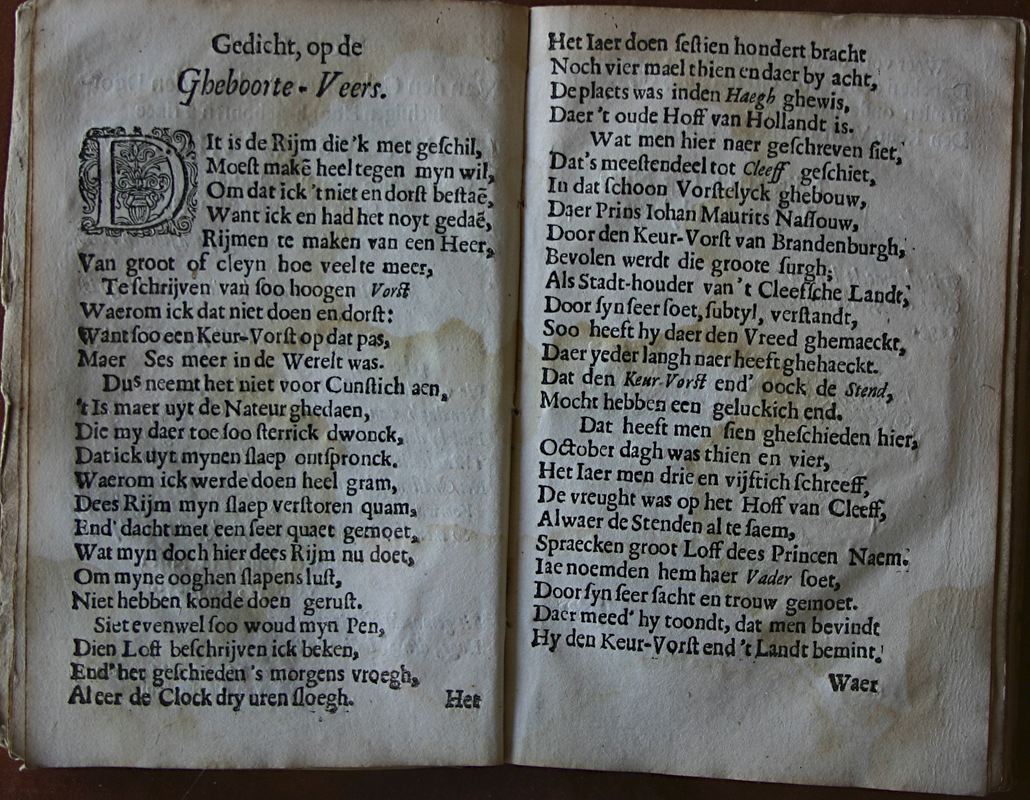 Gedicht, op de
Gheboorte-Veers.
DIt is de Rijm die'k met geſchil,
Moeſt makẽ heel tegen myn wil,
Om dat ick 't niet en dorſt beſtaẽ,
Want ick en had het noyt gedaẽ,
Rijmen te maken van een Heer,
Van groot of cleyn hoe veel te meer,
Te ſchrijven van ſoo hoogen Vorſt
Waerom ick dat niet doen en dorſt:
Want ſoo een Keur-Vorſt op dat pas,
Maer Ses meer in de Werelt was.
Dus neemt het niet voor Cunſtich aen,
't Is maer uyt de Nateur ghedaen,
Die my daer toe ſoo ſterrick dwonck,
Dat ick uyt mynen ſlaep ontſpronck.
Waerom ick werde doen heel gram,
Dees Rijm myn ſlaep verſtoren quam,
End' dacht met een ſeer quaet gemoet,
Wat myn doch hier dees Rijm nu doet,
Om myne ooghen ſlapens luſt,
Niet hebben konde doen geruſt.
Siet evenwel ſoo woud myn Pen,
Dien Loft beſchrijven ick beken,
End' het geſchieden 's morgens vroegh,
Al eer de Clock dry uren ſloegh.
Het
Het Iaer doen ſeſtien hondert bracht
Noch vier mael thien en daer by acht,
De plaets was inden Haegh ghewis,
Daer 't oude Hoff van Hollandt is.
Wat men hier naer geſchreven ſiet,
Dat's meeſtendeel tot Cleeff geſchiet,
In dat ſchoon Vorſtelyck ghebouw,
Daer Prins Iohan Maurits Naſſouw,
Door den Keur-Vorſt van Brandenburgh,
Bevolen werdt die groote ſurgh;
Als Stadt-houder van 't Cleefſche Landt,
Door ſyn ſeer ſoet, ſubtyl, verſtandt,
Soo heeft hy daer den Vreed ghemaeckt,
Daer yeder langh naer heeft ghehaeckt.
Dat den Keur-Vorſt end' oock de Stend,
Mocht hebben een geluckich end.
Dat heeft men ſien gheſchieden hier,
October dagh was thien en vier,
Het Iaer men drie en vijftich ſchreeff,
De vreught was op het Hoff van Cleeff,
Alwaer de Stenden al te ſaem,
Spraecken groot Loff dees Princen Naem.
Iae noemden hem haer Vader ſoet,
Door ſyn ſeer ſacht en trouw gemoet.
Daer meed' hy toondt, dat men bevindt
Hy den Keur-Vorſt end 't Landt bemint.
Waer